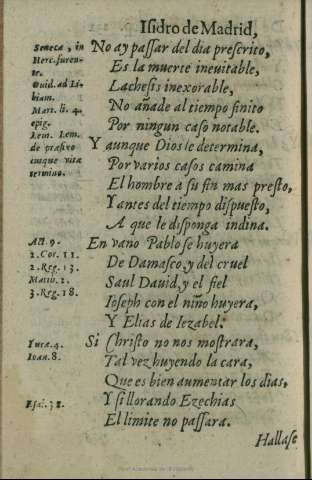 Isidro de Madrid,
Seneca, in
Herc. furen-
te.
Ouid. ad Li-
biam.
Mart. li. 4.
epig.
Lem. Lem.
de præfixo
cuique vitæ
termino.
No ay passar del dia prescrito,
Es la muerte ineuitable,
Lachesis inexorable,
No añade al tiempo finito
Por ningun caso notable.
Y aunque Dios le determina,
Por varios casos camina
El hombre a su fin mas presto,
Y antes del tiempo dispuesto,
A que le disponga indina.
Act. 9.
2. Cor. 11.
2. Reg. 13.
Matth. 2.
3. Reg. 18.
En vano Pablo se huyera
De Damasco, y del cruel
Saul Dauid, y el fiel
Ioseph con el niño huyera,
Y Elias de Iezabel.
Luca. 4.
Ioan. 8.
Esai. 38.
Si Christo no nos mostrara,
Tal vez huyendo la cara,
Que es bien aumentar los dias,
Y si llorando Ezechias
El limite no passara.
Hallase